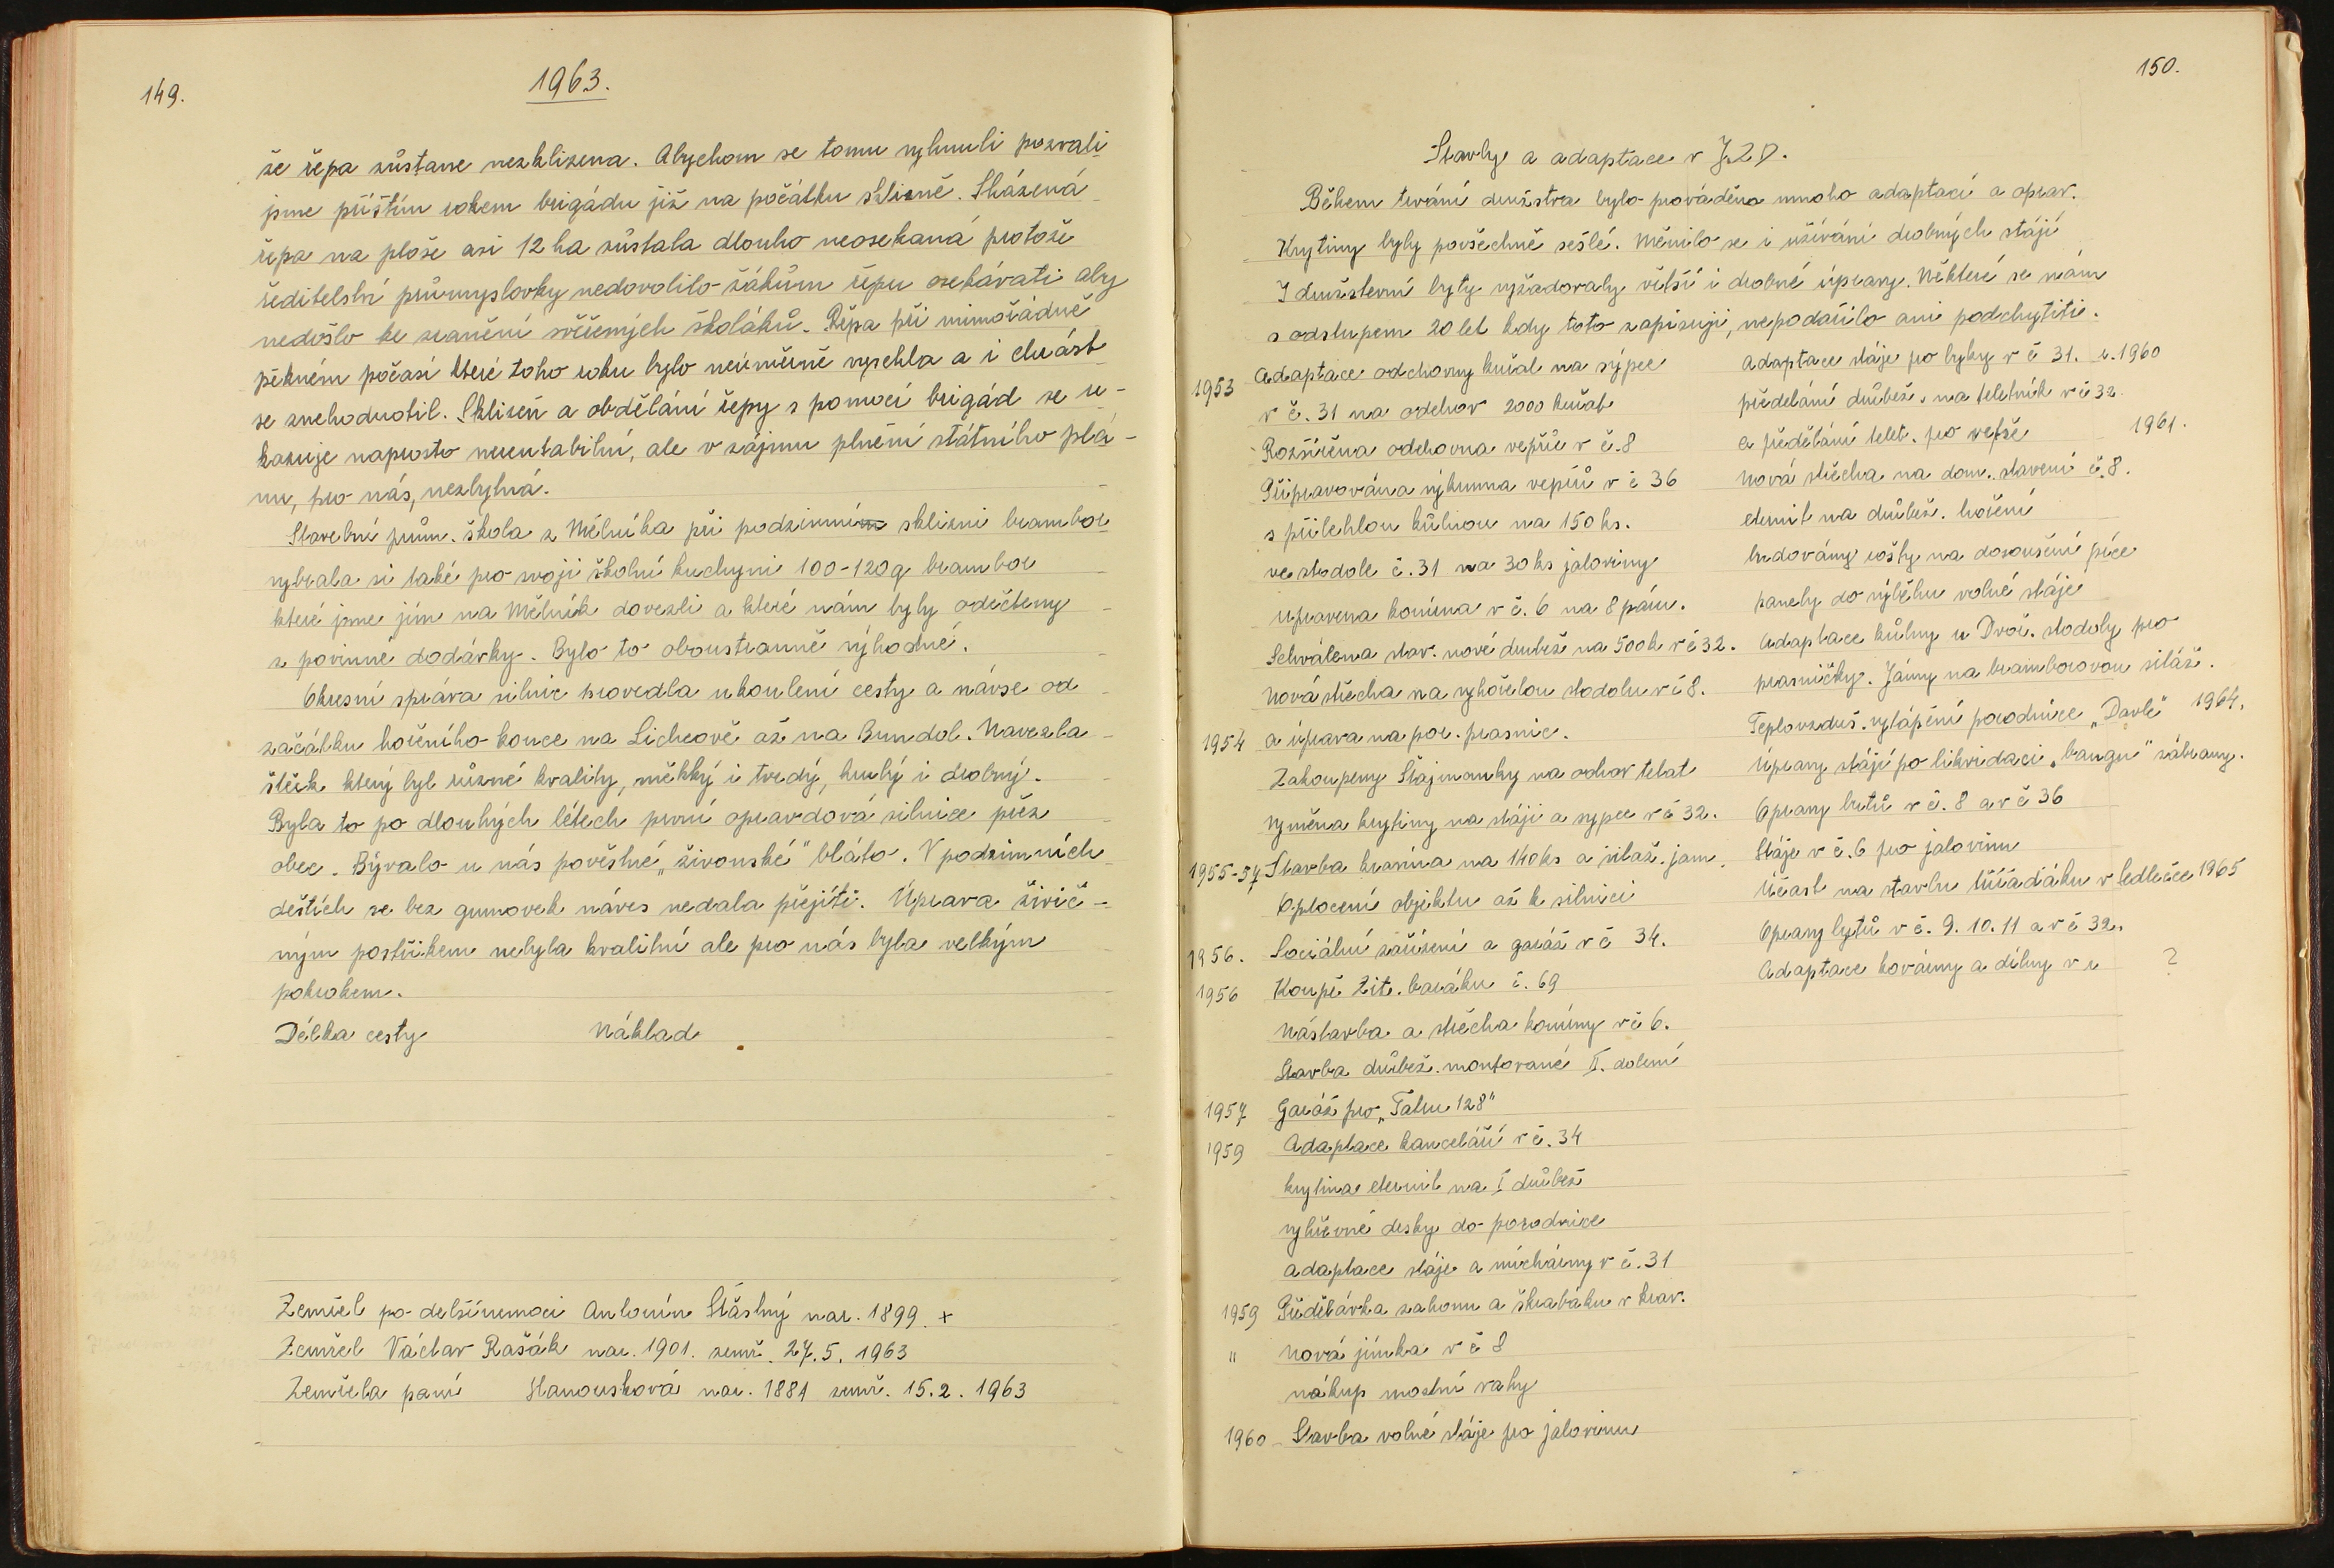 149.
1963.
že řepa zůstane nezklizena. Abychom se tomu vyhnuli pozvali
jsme příštím rokem brigádu již na počátku sklizně. Sházená
řepa na ploše asi 12 ha zůstala dlouho neosekaná protože
ředitelství průmyslovky nedovolilo žákům řepu osekávati aby
nedošlo ke zranění svěřených školáků. Řepa při mimořádně
pěkném počasí které toho roku bylo neúměrně vyschla a i chrást
se znehodnotil. Sklizeň a obdělání řepy s pomocí brigád se u-
kazuje naprosto nerentabilní, ale v zájmu plnění státního plá-
nu, pro nás, nezbytná.
Stavební prům. škola z Mělníka při podzimní sklizni brambor
vybrala si také pro svoji školní kuchyni 100-120 q brambor
které jsme jím na Mělník dovezli a které nám byly odečteny
z povinné dodávky. Bylo to oboustranně výhodné.
Okresní správa silnic provedla ukoulení cesty a návse od
začátku hořeního konce na Licheově až na Bundol. Navezla
štěrk který byl různé kvality, měkký i tvrdý, hrubý i drobný.
Byla to po dlouhých létech první opravdová silnice přez
obec. Bývalo u nás pověstné „živonské" bláto. V podzimních
deštích se bez gumovek náves nedala přejíti. Úprava živič-
ným postřikem nebyla kvalitní ale pro nás byla velkým
pokrokem.
Délka cesty Náklad
Zemřel po delší nemoci Antonín Šťástný nar. 1899. +
Zemřel Václav Rašák nar. 1901. zemř. 27. 5. 1963
Zemřela paní Hanousková nar. 1881 zemř. 15. 2. 1963
150.
Stavby a adaptace v JZD.
Během trvání družstva bylo prováděno mnoho adaptací a oprav.
Krytiny byly povšechně sešlé. Měnilo se i užívání drobných stájí
I družstevní byty vyžadovaly větší i drobné úpravy. Některé se nám
s odstupem 20 let kdy toto zapisuji, nepodařilo ani podchytiti.
1953 Adaptace odchovny kuřat na sýpce
v č. 31 na odchov 2000 kuřat
Rozšířena odchovna vepřů v č. 8
Připravována výkrmna vepřů v č 36
s přilehlou kůlnou na 150 ks.
ve stodole č. 31 na 30 ks jaloviny
upravena konírna v č. 6 na 8 párů.
Schválena stav. nové drubež na 500 k v č 32.
Nová střecha na vyhořelou stodolu v č 8.
1954 a úprava na por. prasnic.
Zakoupeny Štajmanky na odchov telat
Výměna krytiny na stáji a sypce v č 32.
1955-57 Stavba kravína na 140 ks a siláž. jam.
Oplocení objektu až k silnici
1956. Sociální zařízení a garáž v č 34.
1956 Koupě Zit. baráku č. 69
Nástavba a střecha konírny v č 6.
Stavba drůbež. montované II. dolení
1957 Garáž pro „Tatru 128"
1959 Adaptace kanceláří v č. 34
krytina eternit na I drůbež
výhřevné desky do porodnice
adaptace stáje a míchárny v č. 31
1959 Předělávka zahonu a škrabáku v krav.
" Nová jímka v č 8
nákup mostní váhy
1960 Stavba volné stáje pro jalovinu
Adaptace stáje pro býky v č 31. r. 1960
předelání drůbež. na teletník v č 32.
a předělání telet. pro vepře 1961.
Nová střecha na dom. stavení č. 8.
eternit na drůbež. hoření
budovány rošty na dosoušení píce
panely do výběhu volné stáje
Adaptace kůlny u Dvoř. stodoly pro
prasničky. Jámy na bramborovou siláž.
Teplovzduš. vytápění porodnice „Davle" 1964.
Úpravy stájí po likvidaci „bangu" zábrany.
Opravy bytů v č. 8 a v č 36
Stáje v č. 6 pro jalovinu
Účast na stavbu tříďáku v Ledečce 1965
Opravy bytů v č. 9. 10. 11 a v č 32.
Adaptace kovárny a dílny v r ?